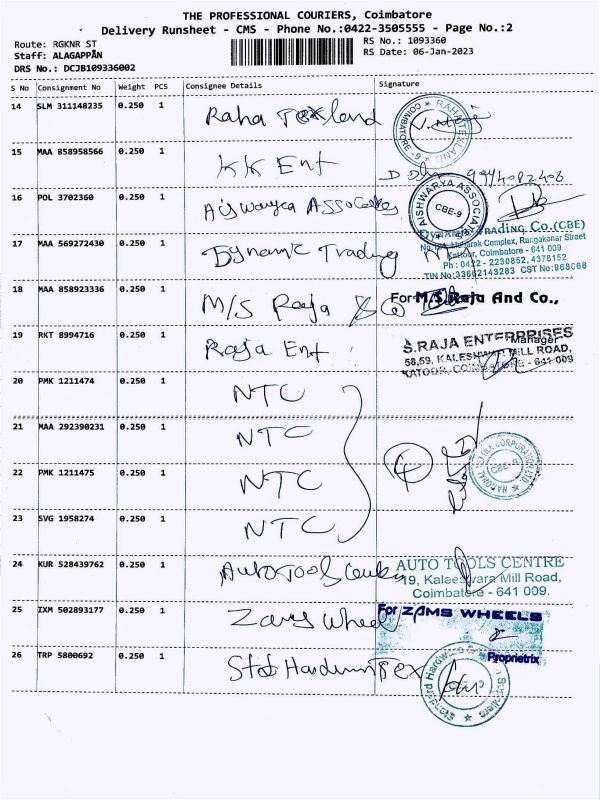 THE PROFESSIONAL COURIERS, Coimbatore
Delivery Runsheet - CMS - Phone No.:0422-3505555 - Page No.:2
Route: RGKNR ST
Staff: ALAGAPPAN
DRS No.: DCJB109336002
RS No.: 1093360
RS Date: 06-Jan-2023
S No Consignment No Weight PCS Consignee Details Signature
14 SLM 311148235 0.250 1 Raha Texland
15 MAA 858958566 0.250 1 KK Ent
16 POL 3702360 0.250 1 Aiswarya Assocates
AISHWARYA ASSOCIATES
CBE-9
17 MAA 569272430 0.250 1 Dynamic Trading
Dynamic Trading Co.(CBE)
Mubarak Complex, Rangakonar Street
Kattoor, Coimbatore - 641 009
Ph : 0422 - 2230852, 4378152
TIN No:33662143283 CST No:968068
18 MAA 858923336 0.250 1 M/S Raja & Co
For M/S.Raja And Co.,
Manager
19 RKT 8994716 0.250 1 Raja Ent
S.RAJA ENTERPRISES
58,59, KALESHWARA MILL ROAD,
KATOOR, COIMBATORE - 641 009
20 PMK 1211474 0.250 1 NTC
21 MAA 292390231 0.250 1 NTC
22 PMK 1211475 0.250 1 NTC
23 SVG 1958274 0.250 1 NTC
4
NATIONAL TEXTILE CORPORATION LTD.
CBE-9
24 KUR 528439762 0.250 1 Auto Tools Centre
AUTO TOOLS CENTRE
19, Kaleeswara Mill Road,
Coimbatore - 641 009.
25 IXM 502893177 0.250 1 Zams Wheel
For ZAMS WHEELS
Proprietrix
26 TRP 5800692 0.250 1